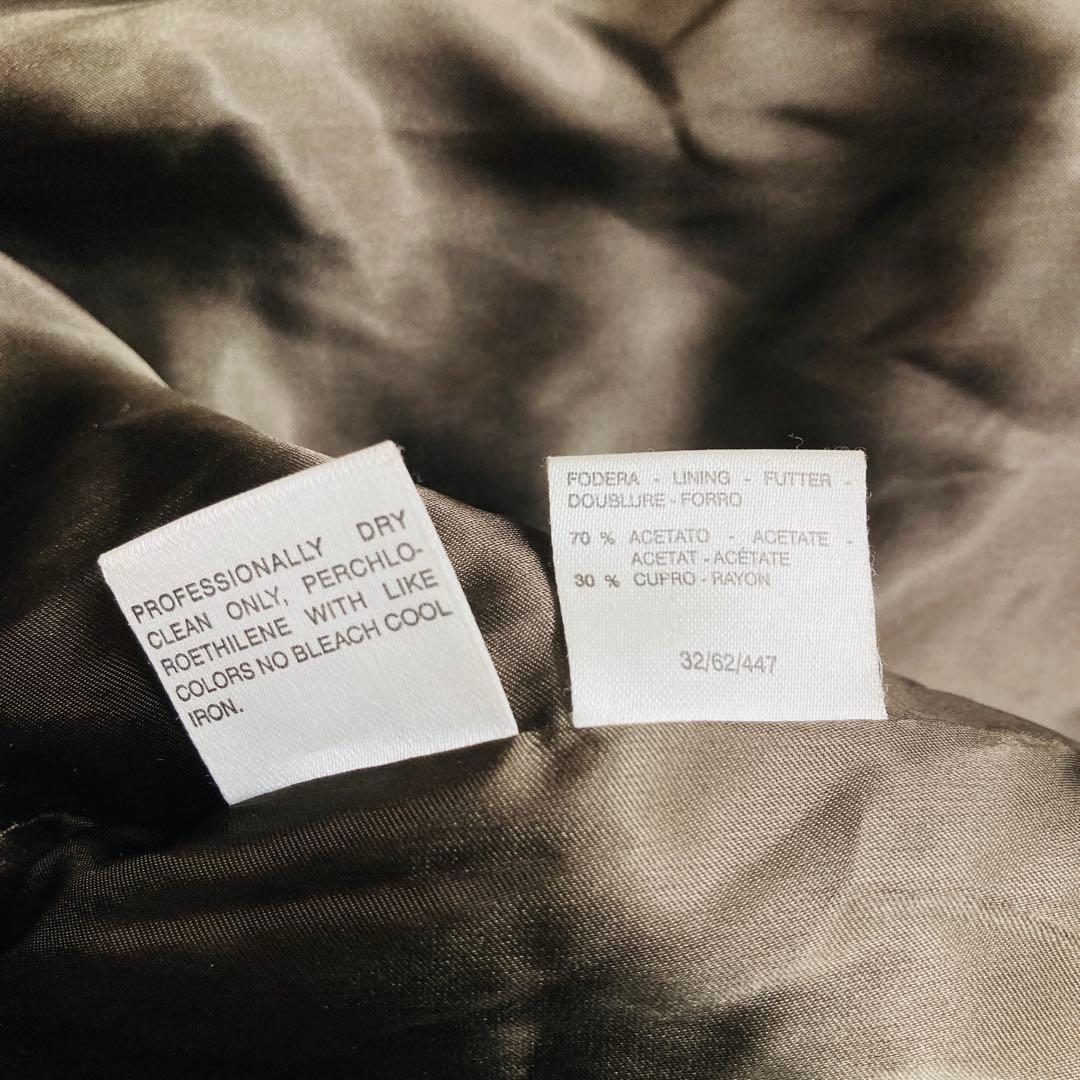 PROFESSIONALLY DRY
CLEAN ONLY, PERCHLO-
ROETHILENE WITH LIKE
COLORS NO BLEACH COOL
IRON.
FODERA - LINING - FUTTER -
DOUBLURE - FORRO
70 % ACETATO - ACETATE -
ACETAT - ACÉTATE
30 % CUPRO - RAYON
32/62/447